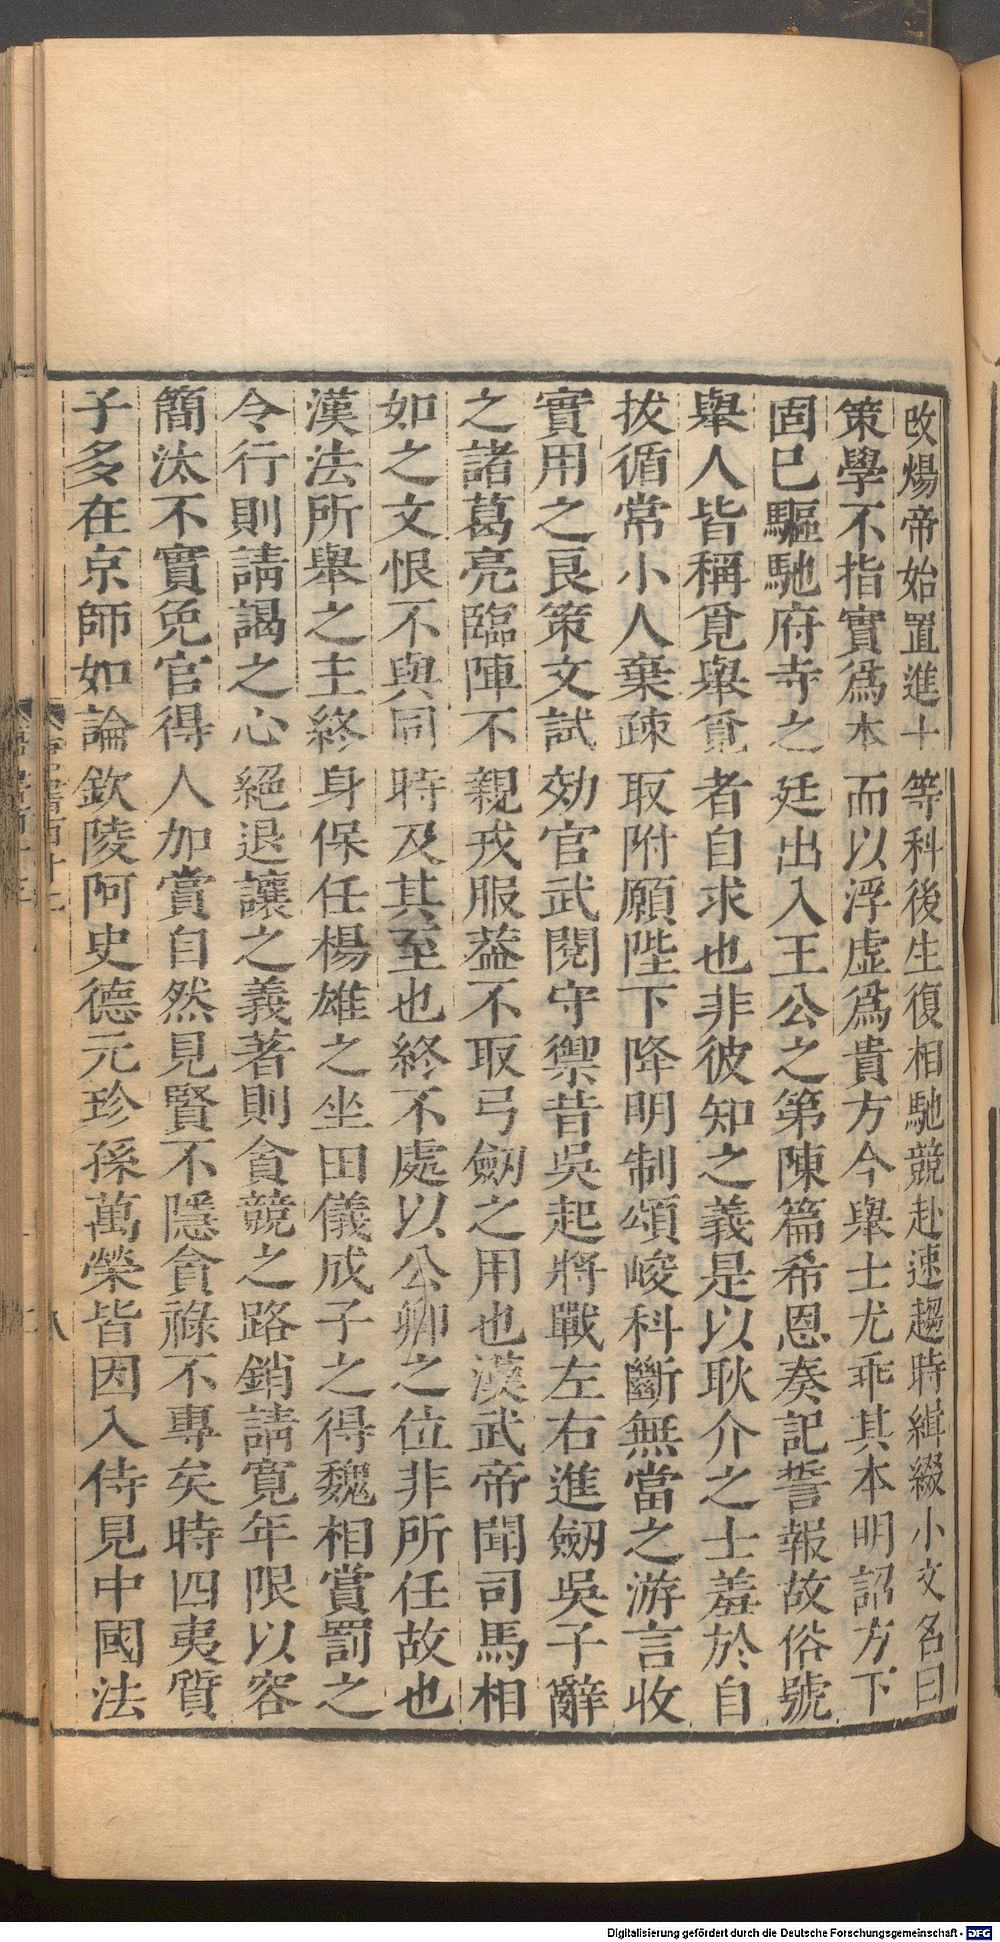 改煬帝始置進士等科後生復相馳競赴速趨時緝綴小文名曰
策學不指實爲本而以浮虛爲貴方今舉士尤乖其本明詔方下
固已驅馳府寺之廷出入王公之第陳篇希恩奏記誓報故俗號
舉人皆稱覓舉覓者自求也非彼知之義是以耿介之士羞於自
拔循常小人棄疎取附願陛下降明制頒峻科斷無當之游言收
實用之良策文試効官武閱守禦昔吳起將戰左右進劒吳子辭
之諸葛亮臨陣不親戎服葢不取弓劒之用也漢武帝聞司馬相
如之文恨不與同時及其至也終不處以公卿之位非所任故也
漢法所舉之主終身保任楊雄之坐田儀成子之得魏相賞罰之
令行則請謁之心絕退讓之義著則貪競之路銷請寬年限以容
簡汰不實免官得人加賞自然見賢不隱貪祿不專矣時四夷質
子多在京師如論欽陵阿史德元珍孫萬榮皆因入侍見中國法
八
Digitalisierung gefördert durch die Deutsche Forschungsgemeinschaft - DFG